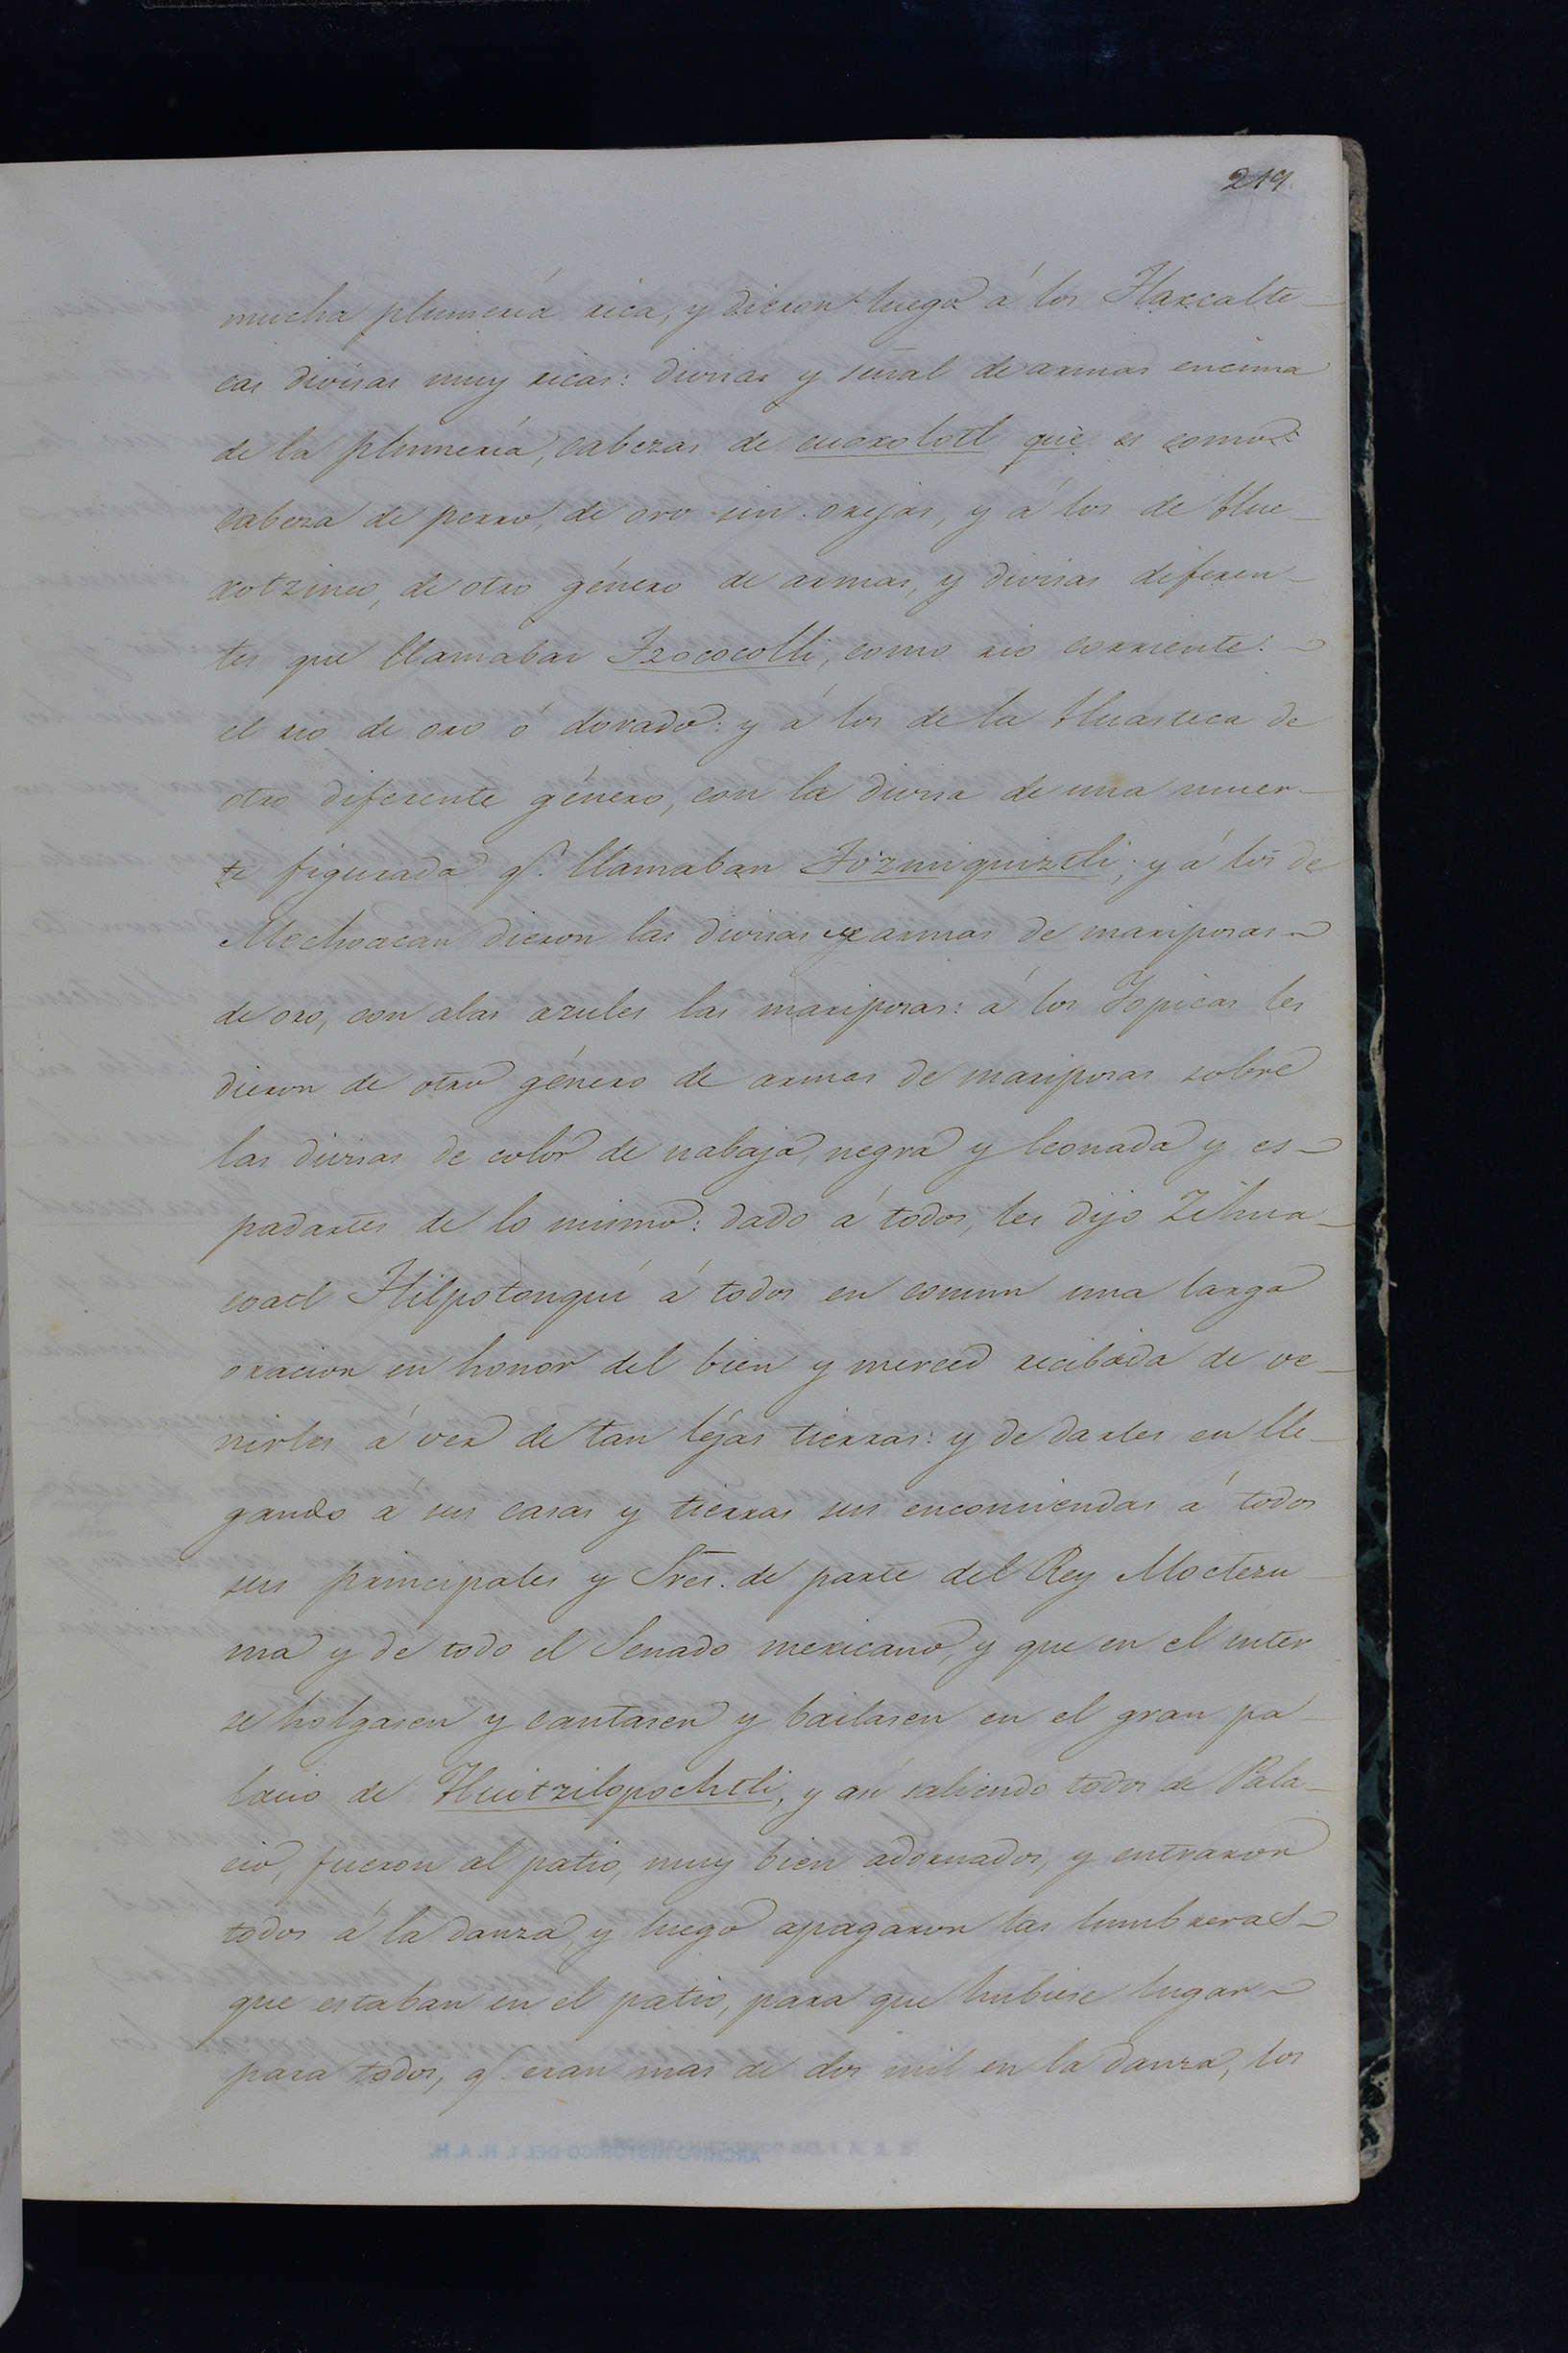 219.
mucha plumería rica, y dieron luego á los Tlaxcalte-
cas divisas muy ricas: divisas y señal de armas encima
de la plumería, cabezas de cuoxolotl que es como
cabeza de perro, de oro sin orejas, y á los de Hue-
xotzinco, de otro género de armas, y divisas diferen-
tes que llamaban Tzococolli, como rio corriente:
el rio de oro ó dorado: y á los de la Huasteca de
otro diferente género, con la divisa de una muer-
te figurada q.e llamaban Tozmiquiztli; y á los de
Mechoacan dieron las divisas y armas de mariposas
de oro, con alas azules las mariposas: á los Yopicas les
dieron de otro género de armas de mariposas sobre
las divisas de color de nabaja, negra y leonada y es-
padartes de lo mismo: dado á todos, les dijo Zihua-
coatl Tlilpotonqui á todos en comun una larga
oracion en honor del bien y merced recibida de ve-
nirles á ver de tan léjas tierras: y de darles en lle-
gando á sus casas y tierras sus encomiendas á todos
sus principales y Sres. de parte del Rey Moctezu-
ma y de todo el Senado mexicano, y que en el inter
se holgasen y cantasen y bailasen en el gran pa-
lacio de Huitzilopochtli, y asi saliendo todos de Pala-
cio, fueron al patio, muy bien adornados, y entraron
todos á la danza, y luego apagaron las lumbreras
que estaban en el patio, para que hubiese lugar
para todos, q.e eran mas de dos mil en la danza, los
ARCHIVO HISTORICO DEL I. N. A. H.